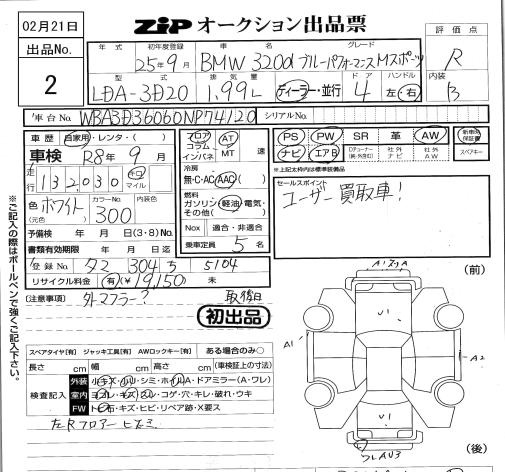 02月21日
ZiP オークション出品票
評価点
R
出品No.
2
年式
初年度登録
車名
グレード
25年9月
BMW 320d ブルーパフォーマンス Mスポーツ
型式
排気量
ドア
ハンドル
内装
LDA-3D20
1.99L
ディーラー・並行
4
左・右
B
車台No.
WBA3D36060NP74120
シリアルNo.
車歴
自家用・レンタ・( )
車検 R8年9月
走行 132,030 キロ マイル
色(元色) ホワイト
カラーNo. 300
内装色
予備検 年 月 日(3・8)No.
書類有効期限 年 月 日迄
登録No.
304
5104
リサイクル料金 有(¥19,150) 未
フロア コラム インパネ
AT MT
速
冷房
無・C・AC・AAC( )
燃料
ガソリン・軽油・電気・その他( )
Nox 適合・非適合
乗車定員 5名
PS PW SR 革 AW
新車時保証書
ナビ エアB
Dチューナー(純・外8ch)
社外ナビ
社外AW
スペアキー
※上記太枠内は標準装備品
セールスポイント
ユーザー買取車!
※ご記入の際はボールペンで強くご記入下さい。
(注意事項)
外マフラー?
取後日
初出品
スペアタイヤ[有] ジャッキ工具[有] AWロックキー[有] ある場合のみ○
長さ cm 幅 cm 高さ cm (車検証上の寸法)
検査記入
外装 小キズ・小凹・シミ・ホイルA・ドアミラー(A・ワレ)
室内 ヨゴレ・キズ・スレ・コゲ・穴・キレ・破れ・ウキ
FW トビ石・キズ・ヒビ・リペア跡・X要ス
左Rフロアー ヒズミ
(前)
U1
A1
A2
U1
(後)